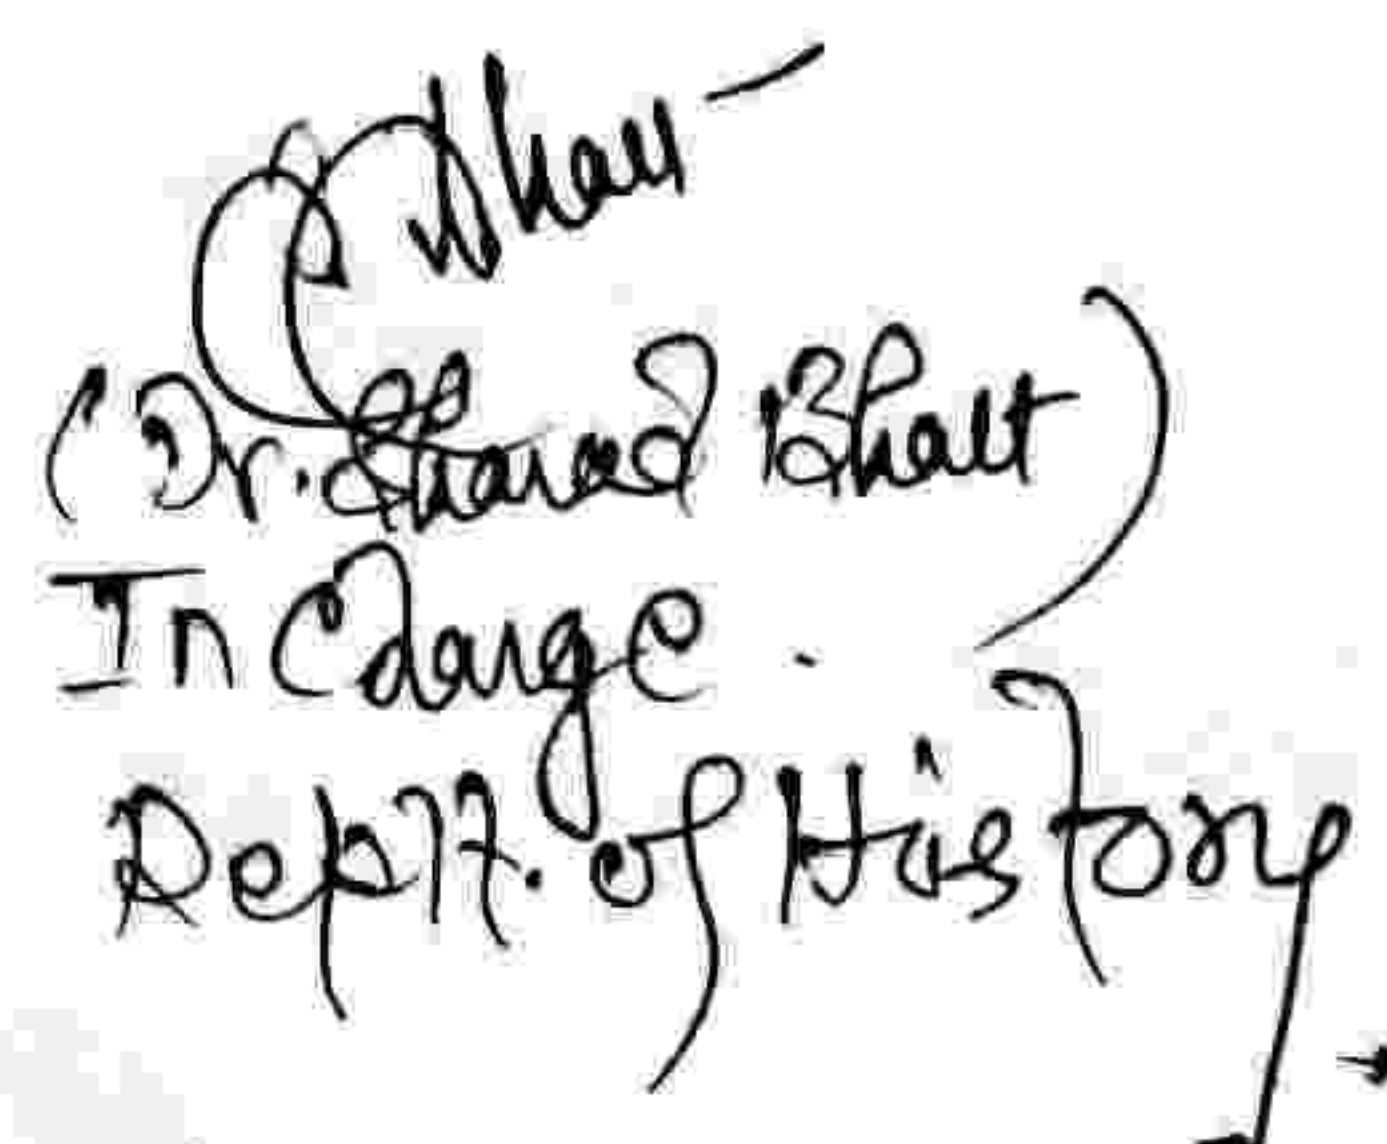 (Dr. Sharad Bhatt)
In Charge.
Deptt. of History